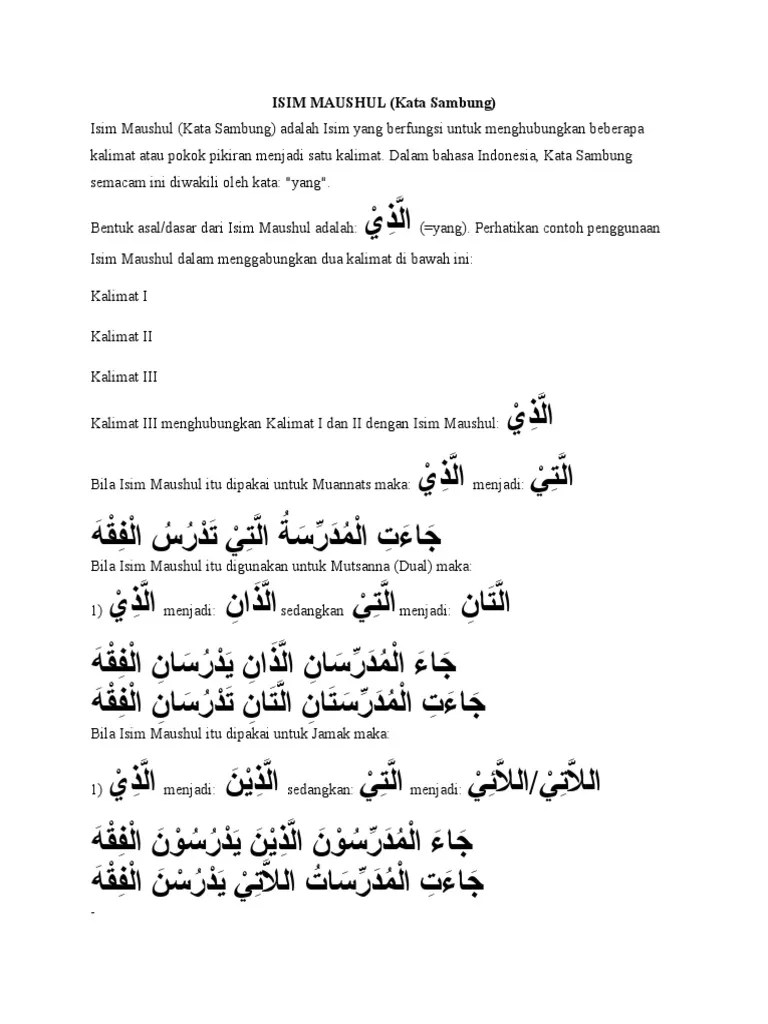 ISIM MAUSHUL (Kata Sambung)
Isim Maushul (Kata Sambung) adalah Isim yang berfungsi untuk menghubungkan beberapa
kalimat atau pokok pikiran menjadi satu kalimat. Dalam bahasa Indonesia, Kata Sambung
semacam ini diwakili oleh kata: "yang".
Bentuk asal/dasar dari Isim Maushul adalah: الَّذِيْ (=yang). Perhatikan contoh penggunaan
Isim Maushul dalam menggabungkan dua kalimat di bawah ini:
Kalimat I
Kalimat II
Kalimat III
Kalimat III menghubungkan Kalimat I dan II dengan Isim Maushul: الَّذِيْ
Bila Isim Maushul itu dipakai untuk Muannats maka: الَّذِيْ menjadi: الَّتِيْ
جَاءَتِ الْمُدَرِّسَةُ الَّتِيْ تَدْرُسُ الْفِقْهَ
Bila Isim Maushul itu digunakan untuk Mutsanna (Dual) maka:
1) الَّذِيْ menjadi: الَّذَانِ sedangkan الَّتِيْ menjadi: الَّتَانِ
جَاءَ الْمُدَرِّسَانِ الَّذَانِ يَدْرُسَانِ الْفِقْهَ
جَاءَتِ الْمُدَرِّسَتَانِ الَّتَانِ تَدْرُسَانِ الْفِقْهَ
Bila Isim Maushul itu dipakai untuk Jamak maka:
1) الَّذِيْ menjadi: الَّذِيْنَ sedangkan: الَّتِيْ menjadi: اللاَّتِيْ/اللاَّئِيْ
جَاءَ الْمُدَرِّسُوْنَ الَّذِيْنَ يَدْرُسُوْنَ الْفِقْهَ
جَاءَتِ الْمُدَرِّسَاتُ اللاَّتِيْ يَدْرُسْنَ الْفِقْهَ
-